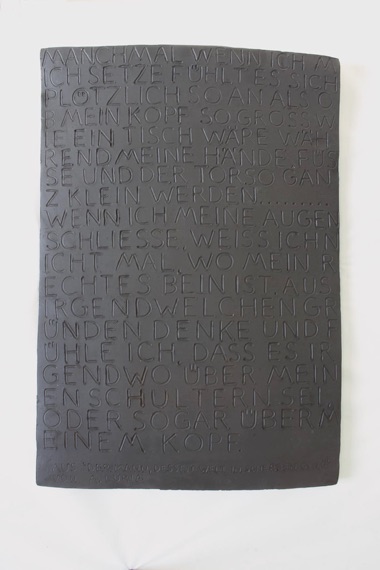 MANCHMAL WENN ICH M
ICH SETZE FÜHLT ES SICH
PLÖTZLICH SO AN ALS O
B MEIN KOPF SO GROSS W
IE EIN TISCH WÄRE WÄH
REND MEINE HÄNDE FÜS
SE UND DER TORSO GAN
Z KLEIN WERDEN.........
WENN ICH MEINE AUGEN
SCHLIESSE, WEISS ICH N
ICHT MAL, WO MEIN R
ECHTES BEIN IST AUS
IRGENDWELCHEN GR
ÜNDEN DENKE UND F
ÜHLE ICH, DASS ES IR
GENDWO ÜBER MEIN
EN SCHULTERN SEI
ODER SOGAR ÜBER M
EINEM KOPF.